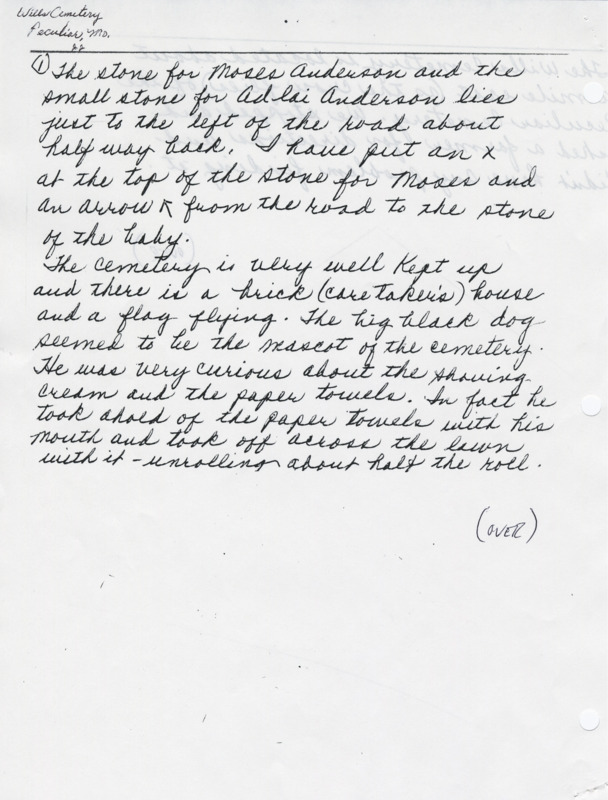 Wills Cemetery
Peculiar, Mo.
① The stone for Moses Anderson and the
small stone for Adlai Anderson lies
just to the left of the road about
half way back. I have put an x
at the top of the stone for Moses and
an arrow ↖ from the road to the stone
of the baby.
The cemetery is very well kept up
and there is a brick (caretaker's) house
and a flag flying. The big black dog
seemed to be the mascot of the cemetery.
He was very curious about the shaving
cream and the paper towels. In fact he
took ahold of the paper towels with his
mouth and took off across the lawn
with it - unrolling about half the roll.
(OVER)